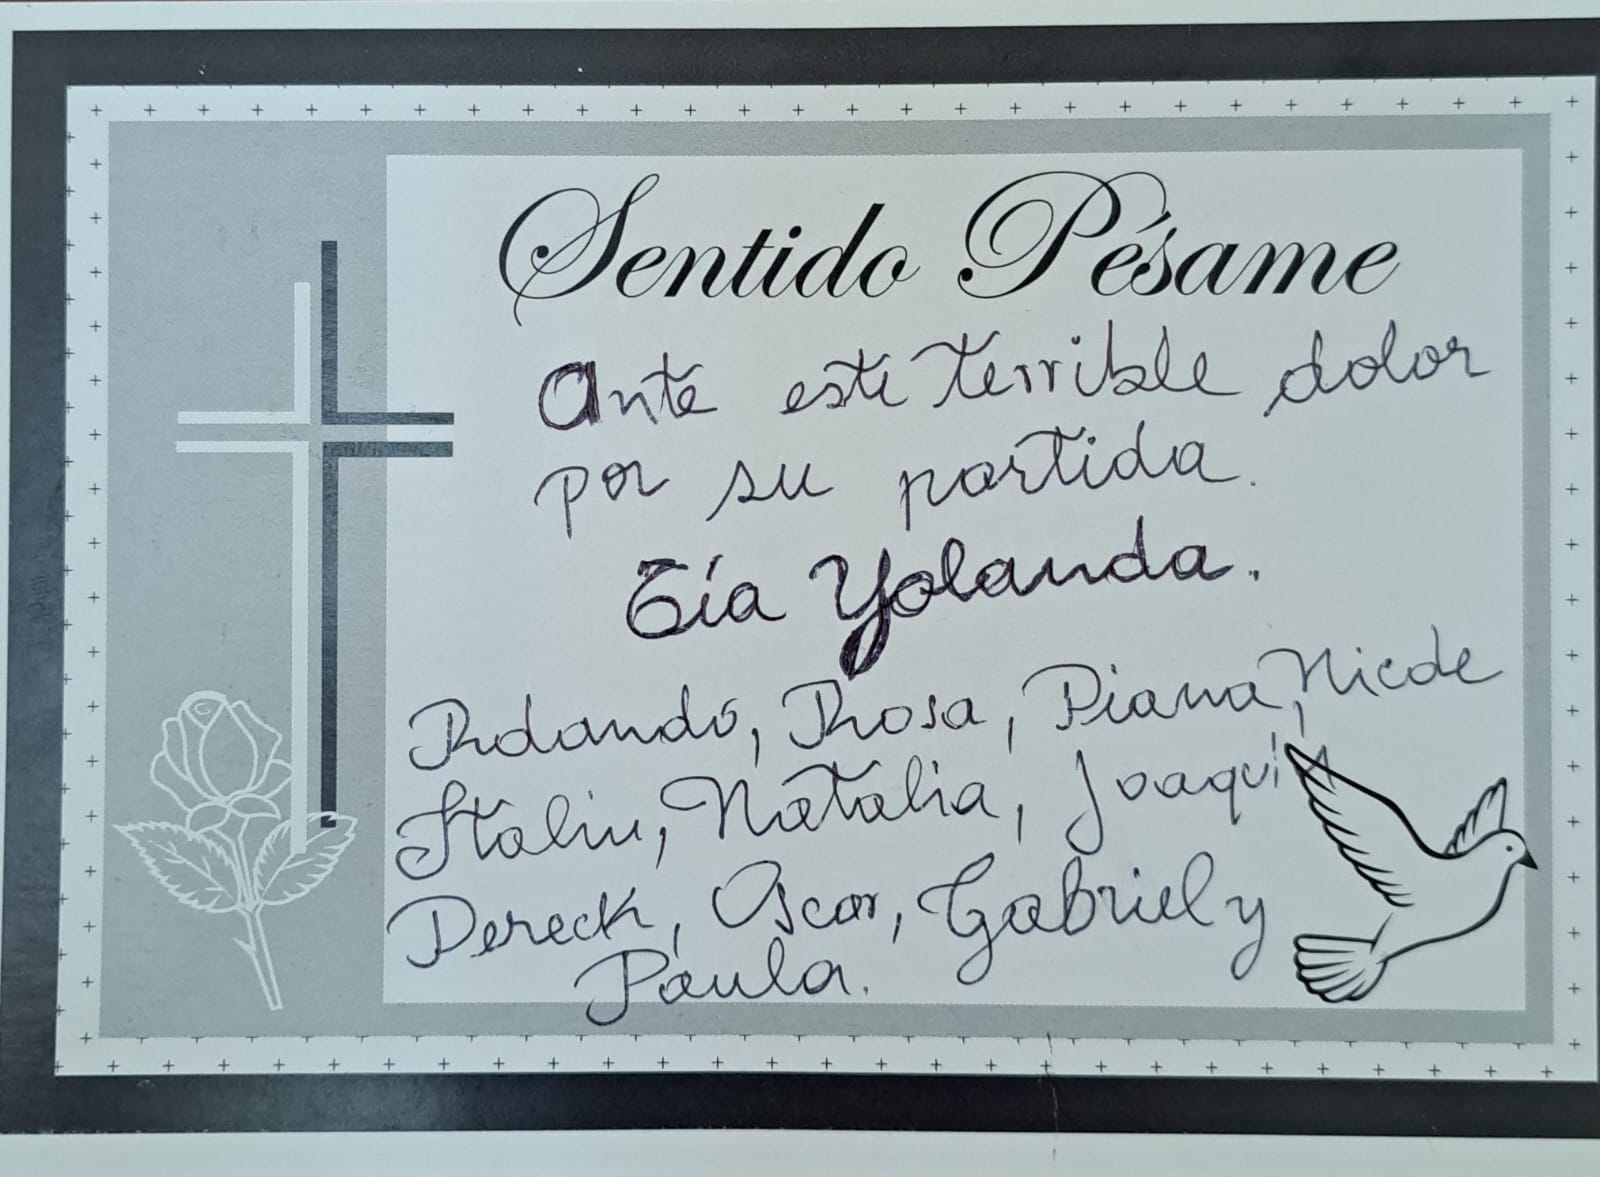 Sentido Pésame
Ante este terrible dolor
por su partida.
Tía Yolanda.
Rolando, Rosa, Diana, Nicole
Stalin, Natalia, Joaquín
Dereck, Oscar, Gabriel y
Paula.